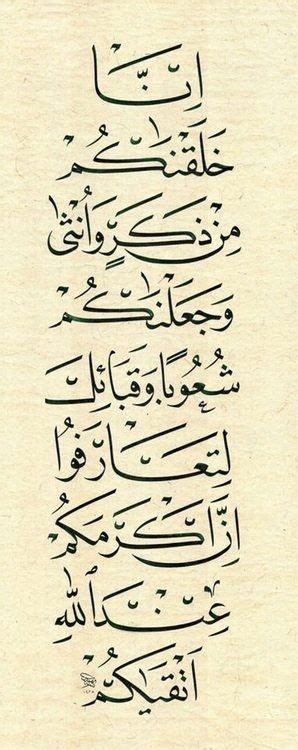 اِنَّا
خَلَقْنٰكُمْ
مِنْ ذَكَرٍ وَاُنْثٰى
وَجَعَلْنٰكُمْ
شُعُوبًا وَقَبَائِلَ
لِتَعَارَفُوا
اِنَّ اَكْرَمَكُمْ
عِنْدَ اللّٰهِ
اَتْقٰيكُمْ